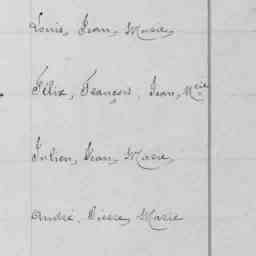 Louis, Jean, Marie,
Félix, François, Jean, Mcie
Julien, Jean, Marie,
André, Pierre, Marie